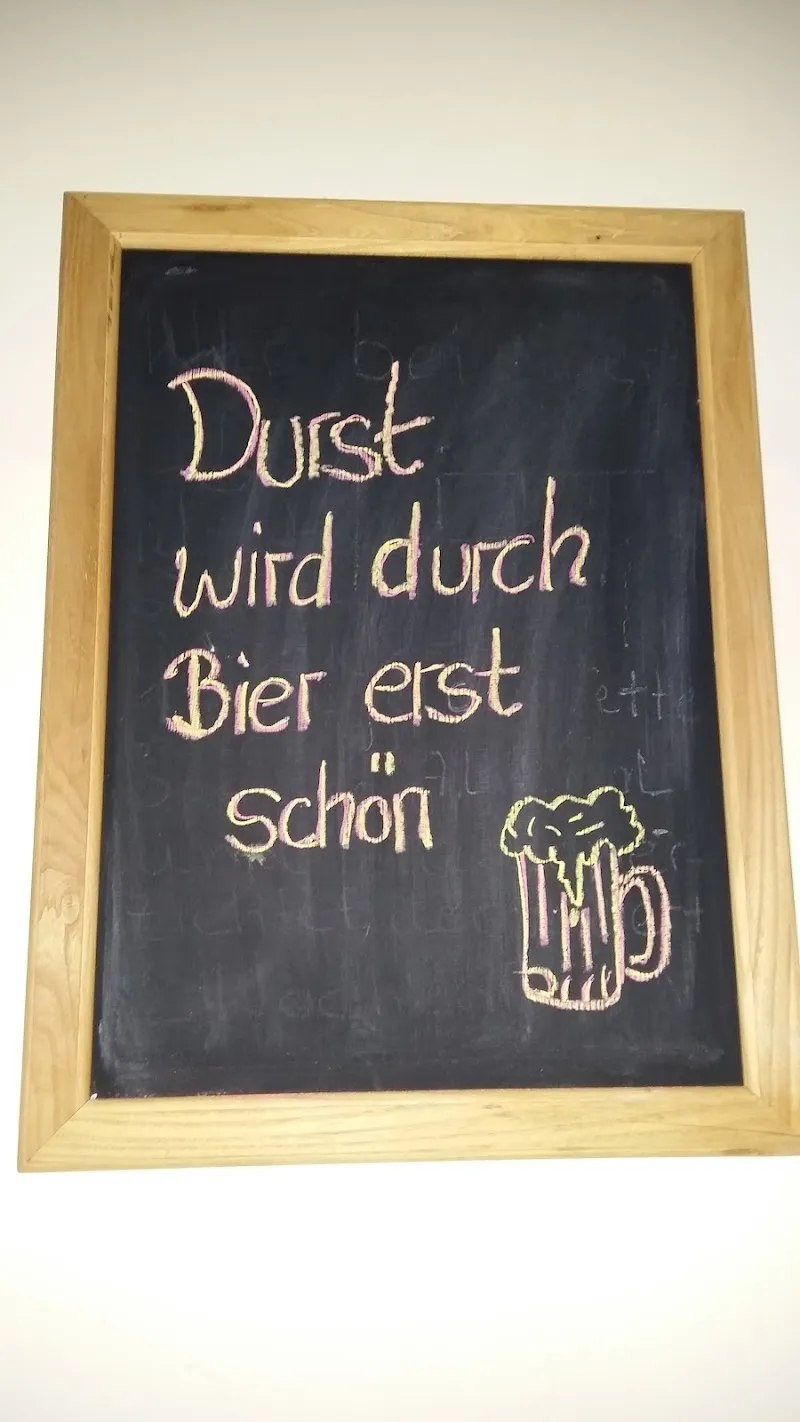 Durst
wird durch
Bier erst
schön